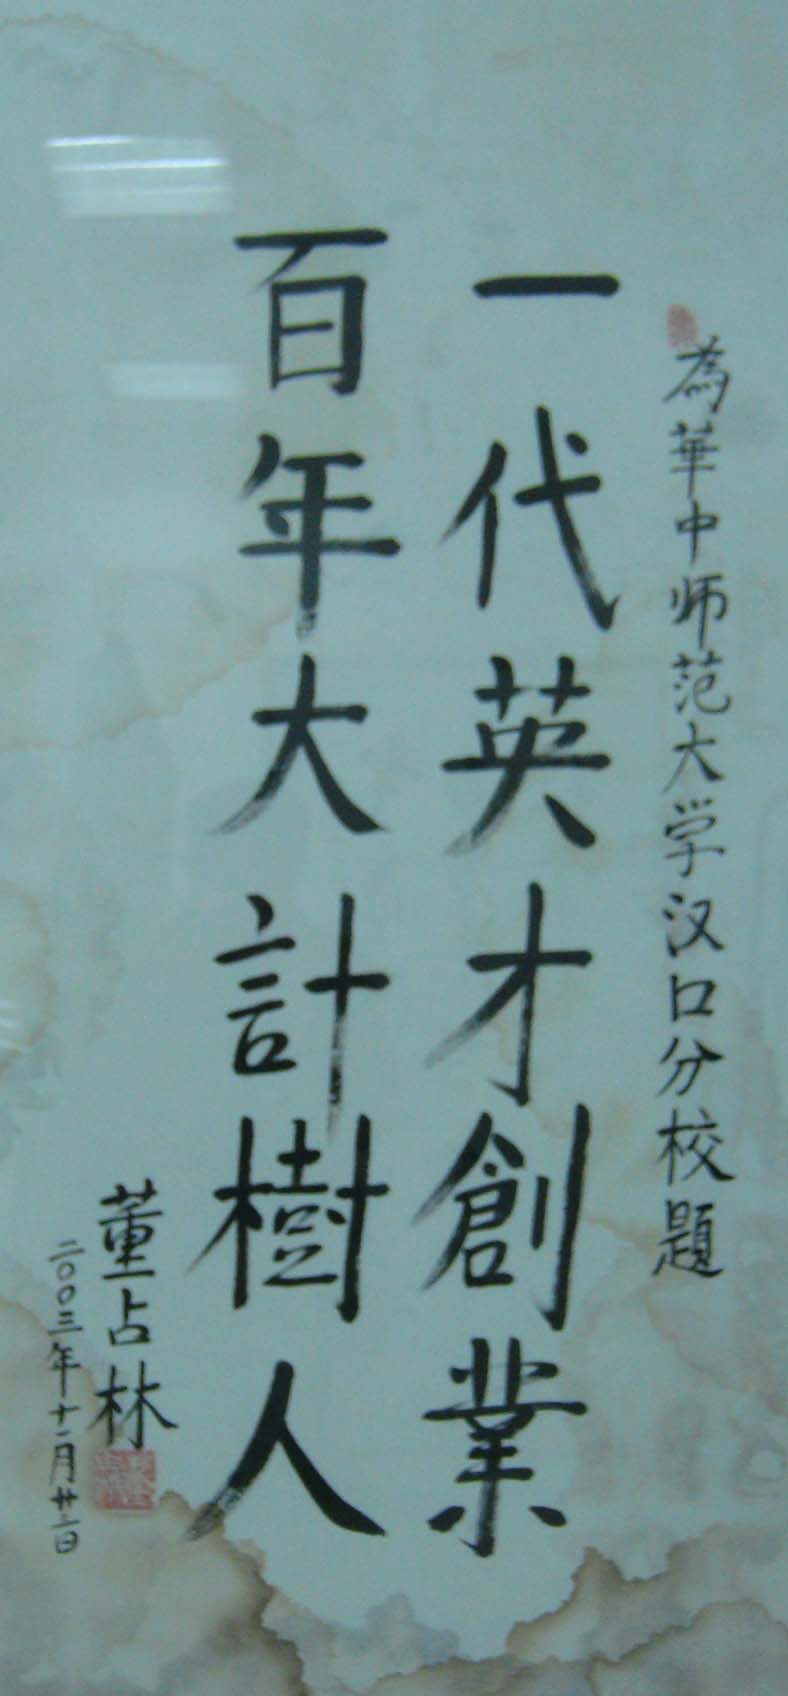 為華中师范大学汉口分校題
一代英才創業
百年大計樹人
董占林
二〇〇三年十一月廿二日